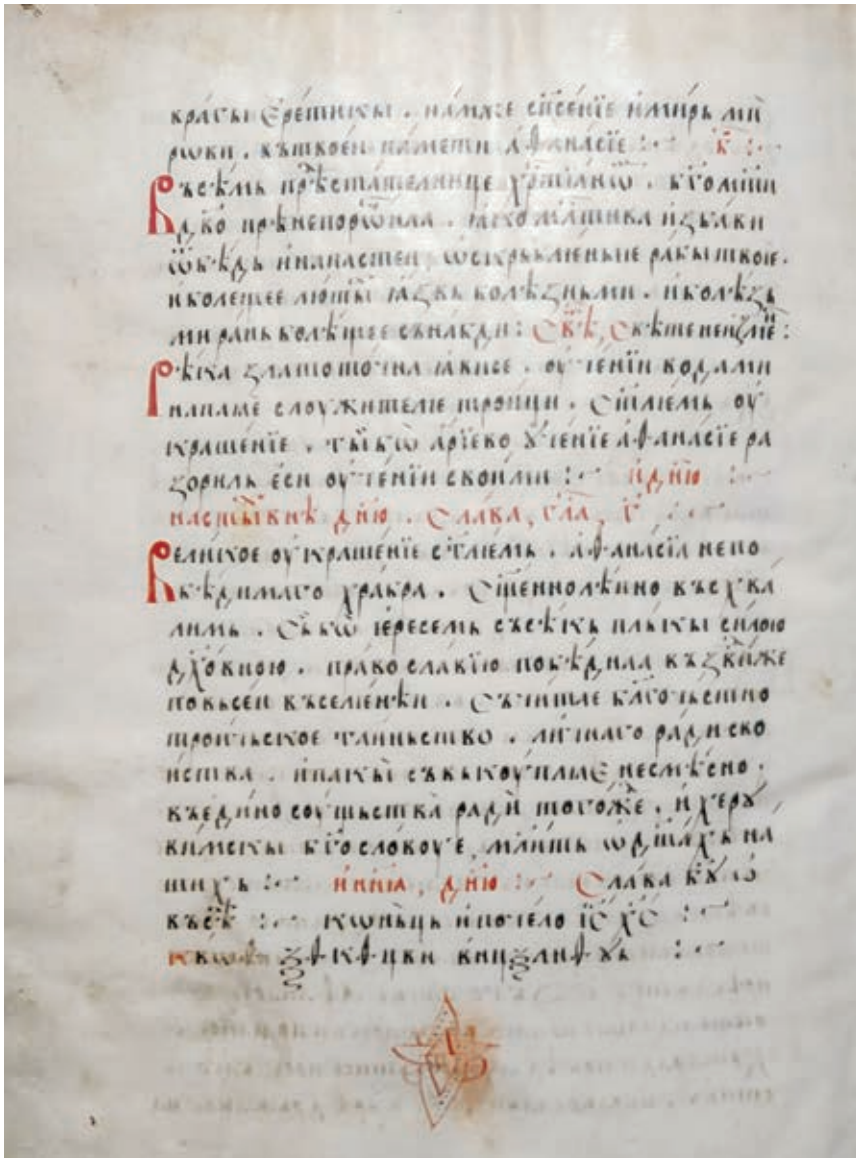 краты еретикы . намже сп҃сенїе и миръ ми
рѡви . въ твоеи памети аѳанасїе :· б҃ :·
Въсѣмь прѣстателнице хр҃тїаномь . б҃гом҃ти
вл҃дко прѣнепорѡчнаа . ꙗко м҃лтива избави
ѿ бѣдь и напастеи ѡскрьбленыѥ рабы твоѥ .
и болещее лютыи ꙗзвь болѣзньми .
: Св҃ѣ,
Рѣка златоточна ꙗвисе . оучении водами
напаꙗѥ слоужителѥ троици . Ст҃лѥмь оу
крашенїе . ты бѡ арїево ꙋченїе аѳанасїе ра
зориль еси оученїи своими :· и дн҃ю :·
на ст҃ыи вн҃ѣ дн҃ю . Слава, гла, г҃ :·
Великое оукрашенїе ст҃лѥмь . аѳанасїа непо
бѣдимаго храбра . Сщ҃еннолѣпно въсхва
лимь . Сь бѡ іересемь съсѣкь плькы силою
дх҃овною . православїю побѣднаа въздвиже
по вьсеи въселѥнѣи . Съчитаѥ бл҃гочьстно
троичьское таиньство . личнаго ради сво
иства . и пакы съвькоуплꙗѥ несмѣсно .
въедино соущьства ради тогоже . и херꙋ
вимскы б҃гословоуѥ , мл҃ить ѡ дш҃ахь на
шихь :· и н҃нꙗ, дн҃ю :· Слава б҃ꙋ
въ :· Кѡньць и почело іс҃ хс҃ :·